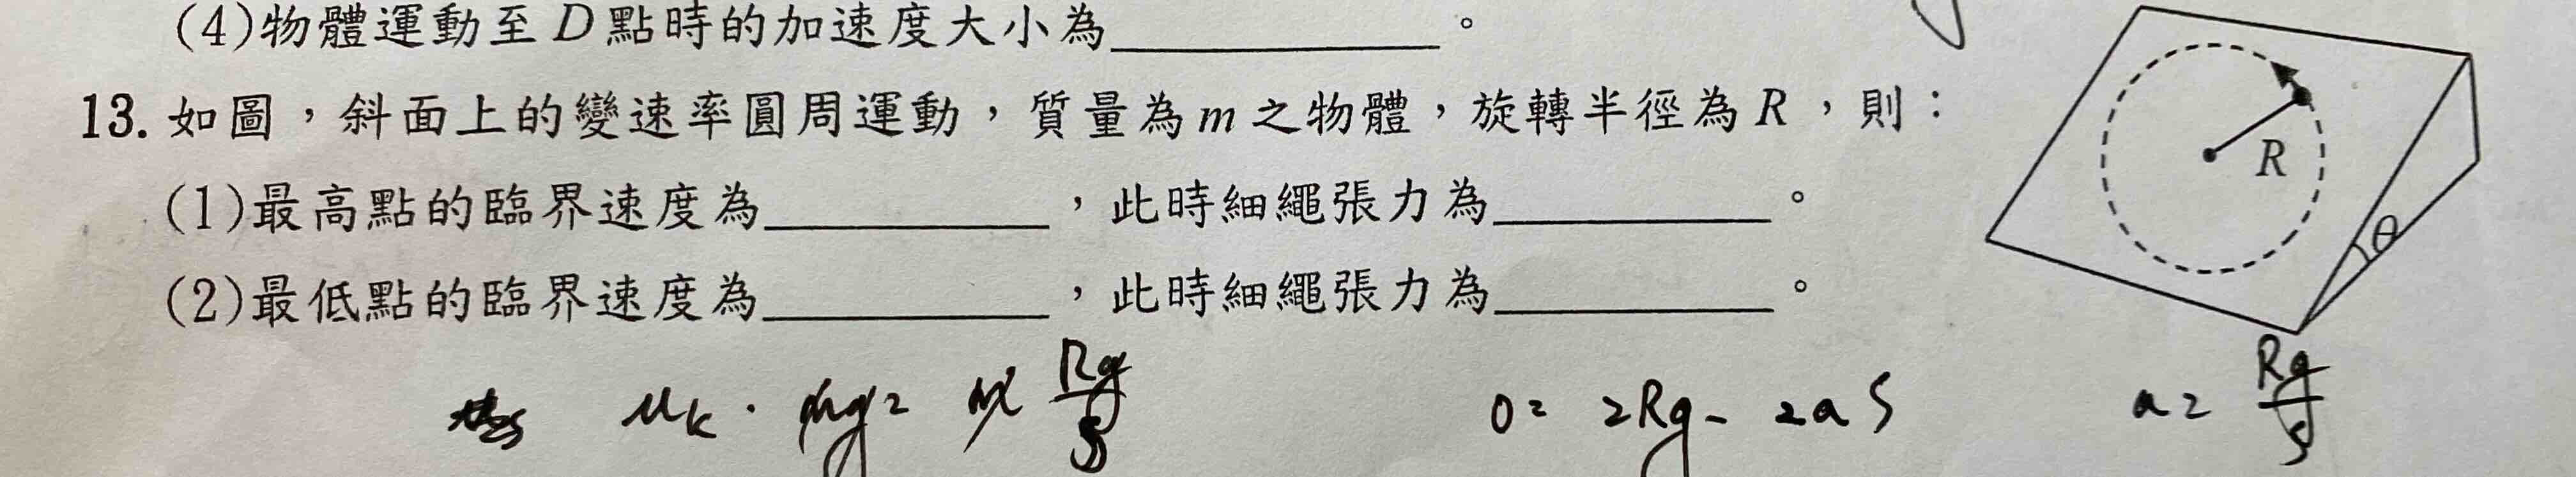 (4)物體運動至D點時的加速度大小為__________。
13. 如圖，斜面上的變速率圓周運動，質量為m之物體，旋轉半徑為R，則：
(1)最高點的臨界速度為__________，此時細繩張力為__________。
(2)最低點的臨界速度為__________，此時細繩張力為__________。
R
θ
μk · mg = m Rg/S
0 = 2Rg - 2aS
a = Rg/S